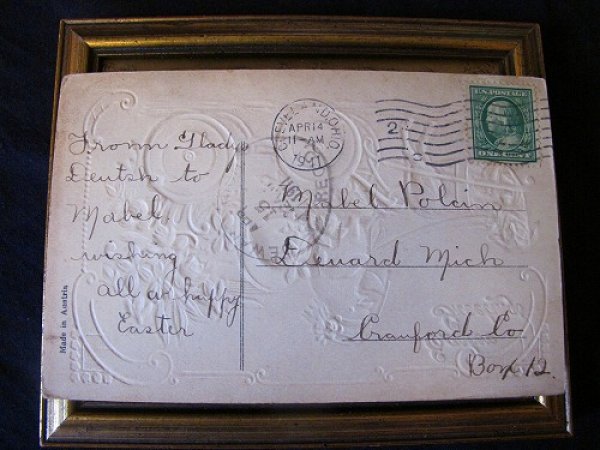 From Gladys
Deutsh to
Mabel
wishing
all a happy
Easter
Made in Austria
CLEVELAND, OHIO
APR 14
11-AM
1911
2
U.S. POSTAGE
ONE CENT
Mabel Polcin
Lenard Mich
Crauford Co
Box 12.